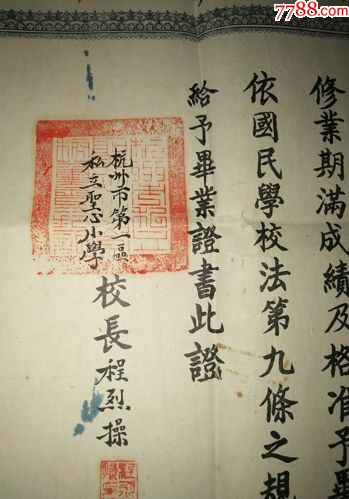 7788.com
修業期滿成績及格准予畢
依國民學校法第九條之規
給予畢業證書此證
杭州市第一區
私立聖心小學
校長程烈操